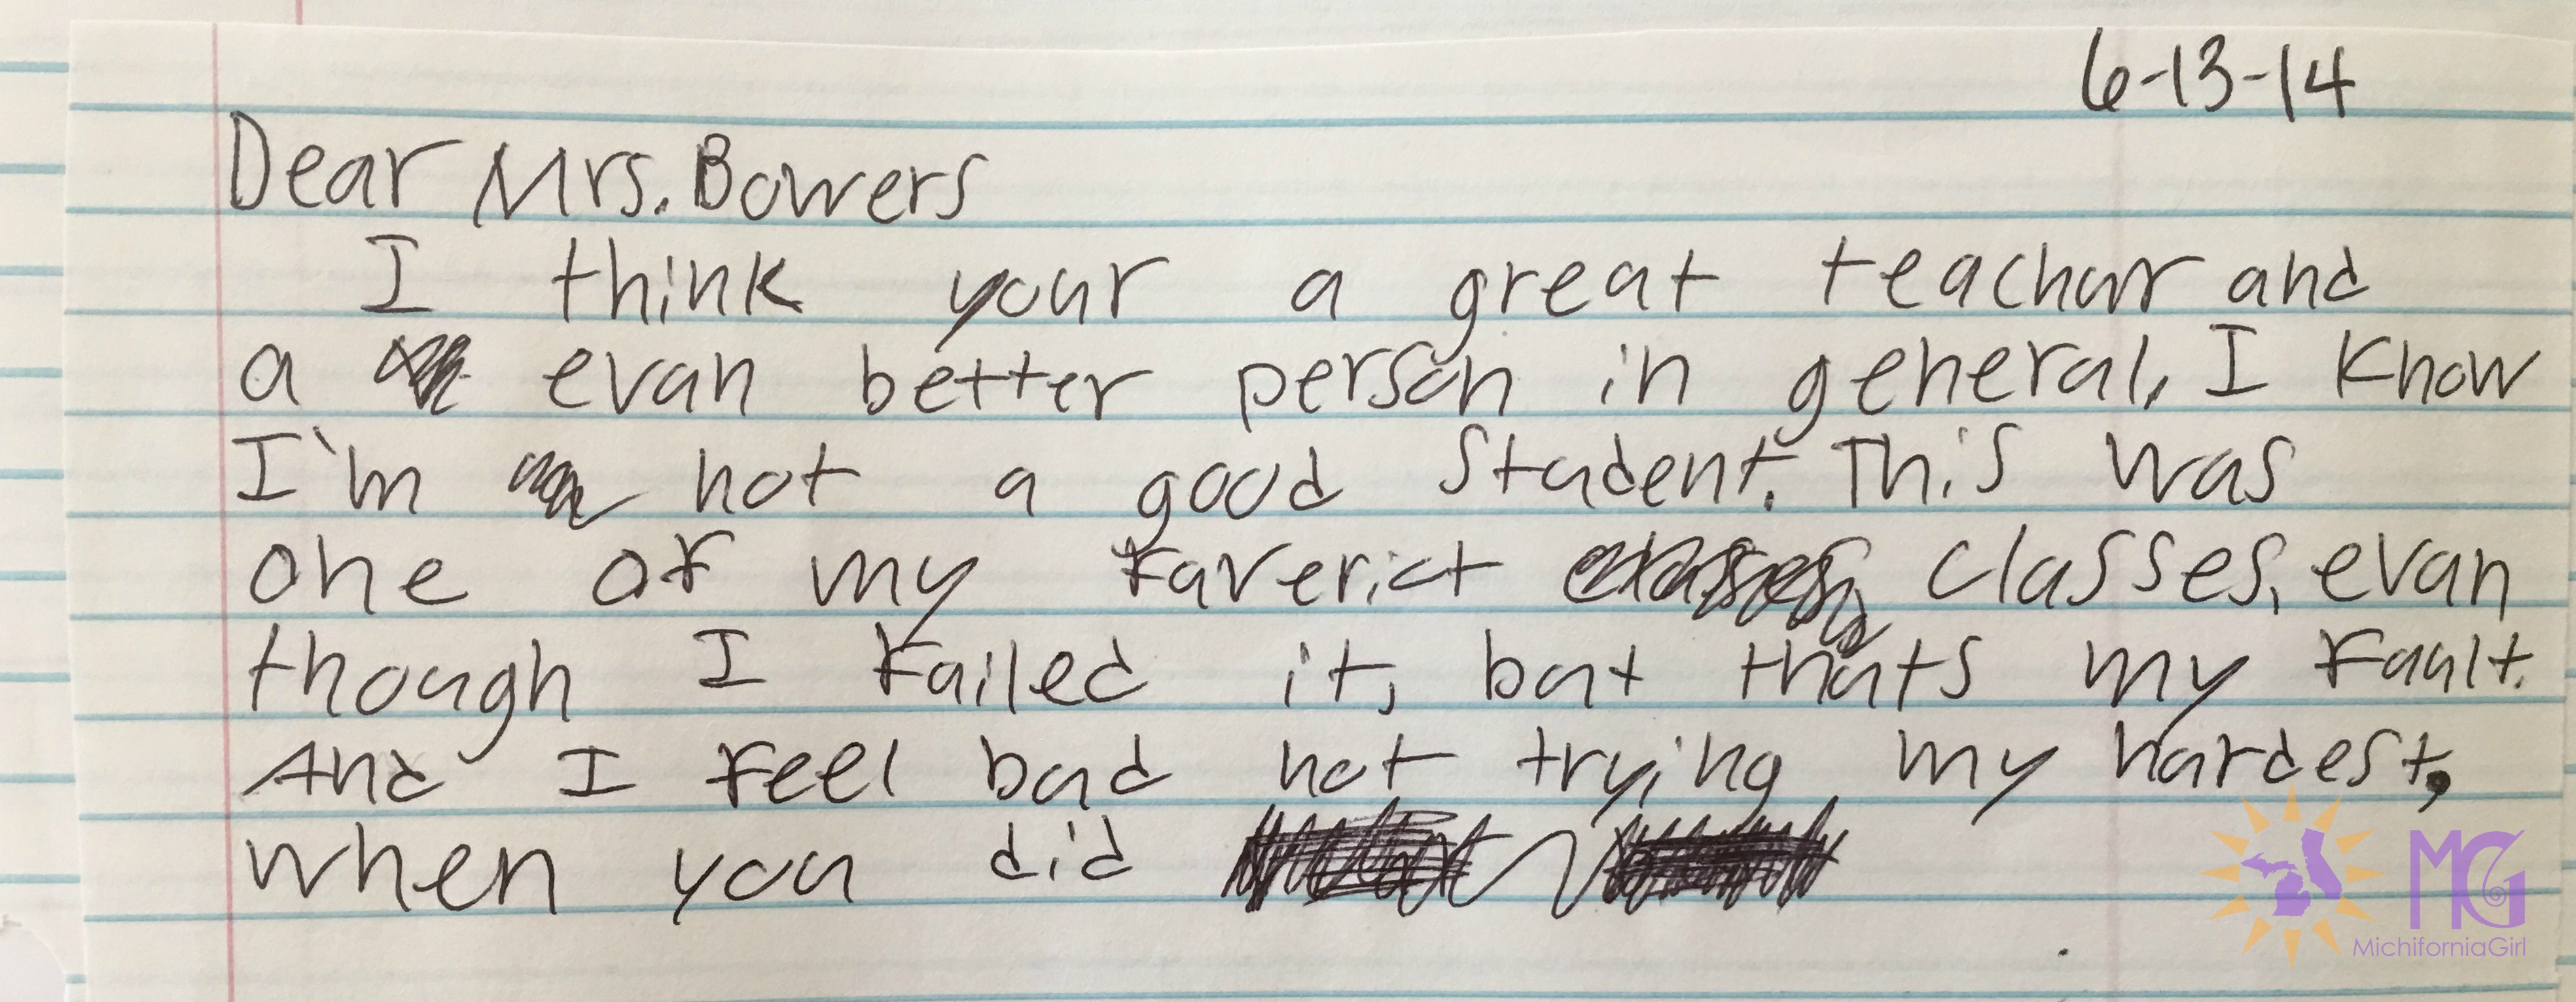 6-13-14
Dear Mrs. Bowers
I think your a great teachur and
a evan better person in general, I know
I'm not a good student. This was
one of my faverict classes, evan
though I failed it, but thats my fault.
And I feel bad not trying my hardest,
when you did
MG
MichiforniaGirl